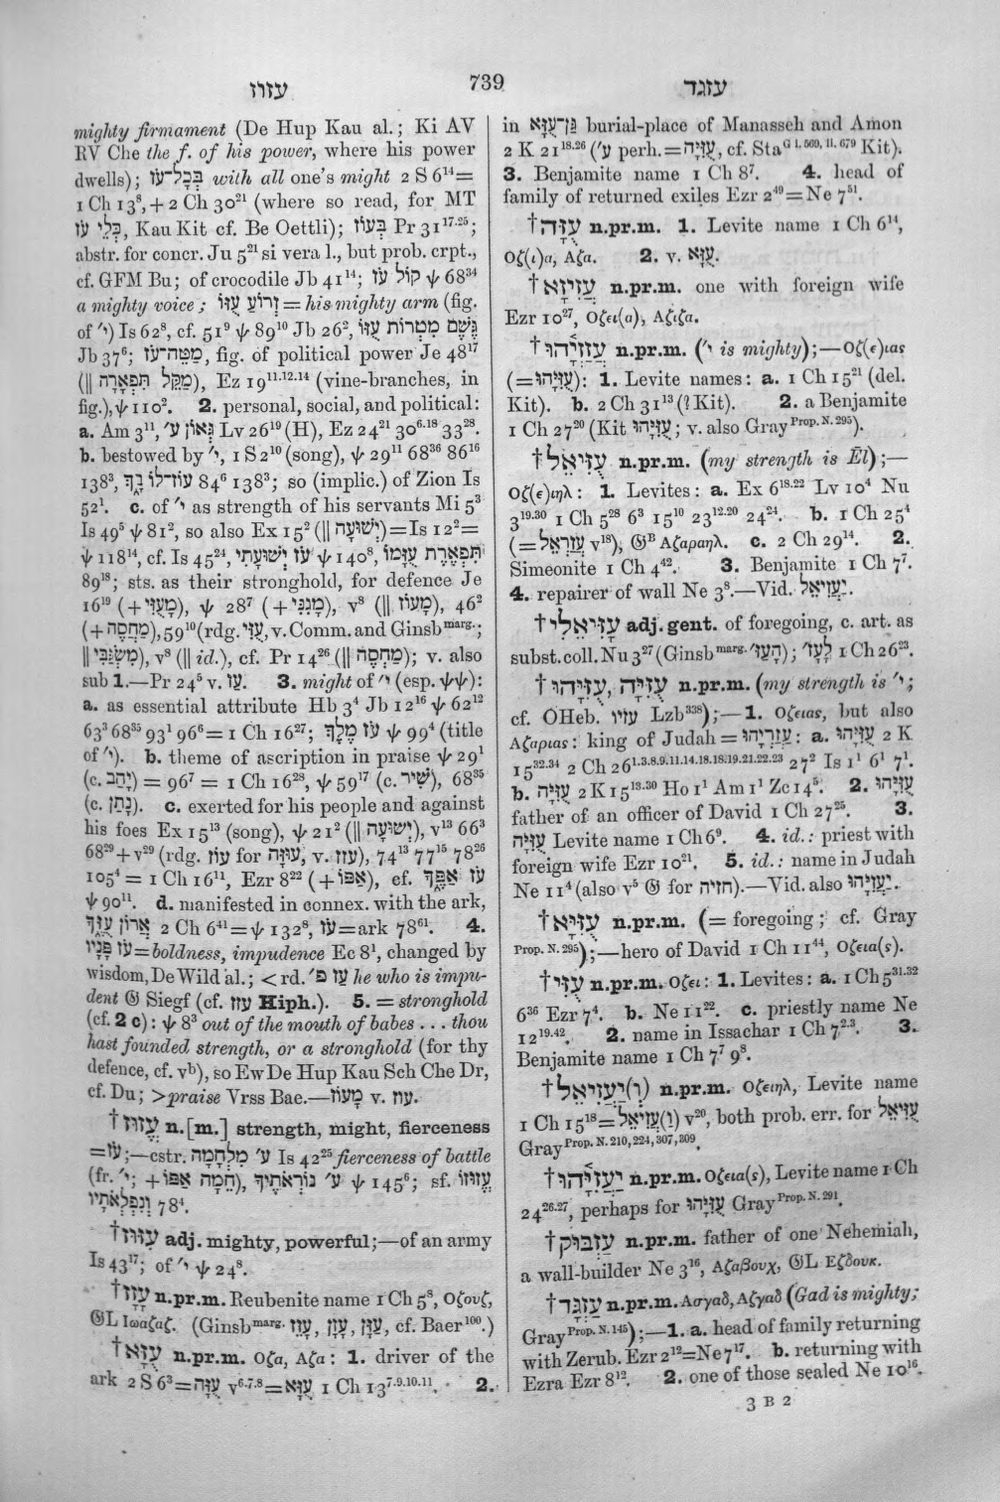 עזוז 739 עזגד
mighty firmament (De Hup Kau al.; Ki AV
RV Che the f. of his power, where his power
dwells); בְּכָל־עֹז with all one's might 2 S 6¹⁴=
1 Ch 13⁸, + 2 Ch 30²¹ (where so read, for MT
כְּלֵי עֹז, Kau Kit cf. Be Oettli); בְּעוֹז Pr 31¹⁷·²⁵;
abstr. for concr. Ju 5²¹ si vera l., but prob. crpt.,
cf. GFM Bu; of crocodile Jb 41¹⁴; קוֹל עֹז ψ 68³⁴
a mighty voice; זְרוֹעַ עֻזּוֹ = his mighty arm (fig.
of י׳) Is 62⁸, cf. 51⁹ ψ 89¹⁰ Jb 26², גֶּשֶׁם מִטְרוֹת עֻזּוֹ
Jb 37⁶; מַטֵּה־עֹז, fig. of political power Je 48¹⁷
(|| מַקֵּל תִּפְאָרָה), Ez 19¹¹·¹²·¹⁴ (vine-branches, in
fig.), ψ 110². 2. personal, social, and political:
a. Am 3¹¹, גְּאוֹן ע׳ Lv 26¹⁹ (H), Ez 24²¹ 30⁶·¹⁸ 33²⁸.
b. bestowed by י׳, 1 S 2¹⁰ (song), ψ 29¹¹ 68³⁶ 86¹⁶
138³, עוֹז־לוֹ בָךְ 84⁶ 138³; so (implic.) of Zion Is
52¹. c. of י׳ as strength of his servants Mi 5³
Is 49⁵ ψ 81², so also Ex 15² (|| יְשׁוּעָה)=Is 12²=
ψ 118¹⁴, cf. Is 45²⁴, עֹז יְשׁוּעָתִי ψ 140⁸, תִּפְאֶרֶת עֻזָּמוֹ
89¹⁸; sts. as their stronghold, for defence Je
16¹⁹ (+ מָעֻזִּי), ψ 28⁷ (+ מָגִנִּי), v⁸ (|| מָעוֹז), 46²
(+ מַחֲסֶה), 59¹⁰ (rdg. עֻזִּי, v. Comm. and Ginsb marg.;
|| מִשְׂגַּבִּי), v⁸ (|| id.), cf. Pr 14²⁶ (|| מַחְסֶה); v. also
sub 1.—Pr 24⁵ v. עַז. 3. might of י׳ (esp. ψψ):
a. as essential attribute Hb 3⁴ Jb 12¹⁶ ψ 62¹²
63³ 68³⁵ 93¹ 96⁶= 1 Ch 16²⁷; עֹז מֶלֶךְ ψ 99⁴ (title
of י׳). b. theme of ascription in praise ψ 29¹
(c. יָהַב) = 96⁷ = 1 Ch 16²⁸, ψ 59¹⁷ (c. שִׁיר), 68³⁵
(c. נָתַן). c. exerted for his people and against
his foes Ex 15¹³ (song), ψ 21² (|| יְשׁוּעָה), v¹³ 66³
68²⁹ + v²⁹ (rdg. עוֹז for עוּזָּה, v. עזז), 74¹³ 77¹⁵ 78²⁶
105⁴ = 1 Ch 16¹¹, Ezr 8²² (+ אַפּוֹ), cf. עֹז אַפֶּךָ
ψ 90¹¹. d. manifested in connex. with the ark,
אֲרוֹן עֻזֶּךָ 2 Ch 6⁴¹=ψ 132⁸, עֹז=ark 78⁶¹. 4.
עֹז פָּנָיו=boldness, impudence Ec 8¹, changed by
wisdom, De Wild al.; <rd. עַז פ׳ he who is impu-
dent 𝔊 Siegf (cf. עזז Hiph.). 5. = stronghold
(cf. 2 c): ψ 8³ out of the mouth of babes . . . thou
hast founded strength, or a stronghold (for thy
defence, cf. vᵇ), so Ew De Hup Kau Sch Che Dr,
cf. Du; >praise Vrss Bae.—מָעוֹז v. עוז.
†עֱזוּז n.[m.] strength, might, fierceness
=עֹז;—cstr. ע׳ מִלְחָמָה Is 42²⁵ fierceness of battle
(fr. י׳; + חֵמָה אַפּוֹ), ע׳ נוֹרְאֹתֶיךָ ψ 145⁶; sf. עֱזוּזוֹ
וְנִפְלְאֹתָיו 78⁴.
†עִזּוּז adj. mighty, powerful;—of an army
Is 43¹⁷; of י׳ ψ 24⁸.
†עָזָז n.pr.m. Reubenite name 1 Ch 5⁸, Οζουζ,
𝔊L Ιωαζαζ. (Ginsb marg. עֹזֵז, עָזָן, עַזָּן, cf. Baer ¹⁰⁰.)
†עֻזָּא n.pr.m. Οζα, Αζα: 1. driver of the
ark 2 S 6³=עֻזָּה v⁶·⁷·⁸=עֻזָּא 1 Ch 13⁷·⁹·¹⁰·¹¹. 2.
in גַּן־עֻזָּא burial-place of Manasseh and Amon
2 K 21¹⁸·²⁶ (ע׳ perh.=עֻזִּיָּה, cf. Sta G i. 569, ii. 679 Kit).
3. Benjamite name 1 Ch 8⁷. 4. head of
family of returned exiles Ezr 2⁴⁹=Ne 7⁵¹.
†עֻזָּה n.pr.m. 1. Levite name 1 Ch 6¹⁴,
Οζ(ι)α, Αζα. 2. v. עֻזָּא.
†עֲזִיזָא n.pr.m. one with foreign wife
Ezr 10²⁷, Οζει(α), Αζιζα.
†עֲזַזְיָהוּ n.pr.m. (י׳ is mighty);—Οζ(ε)ιας
(=עֻזִּיָּהוּ): 1. Levite names: a. 1 Ch 15²¹ (del.
Kit). b. 2 Ch 31¹³ (? Kit). 2. a Benjamite
1 Ch 27²⁰ (Kit עֻזִּיָּהוּ; v. also Gray Prop. N. 295).
†עֻזִּיאֵל n.pr.m. (my strength is Ēl);—
Οζ(ε)ιηλ: 1. Levites: a. Ex 6¹⁸·²² Lv 10⁴ Nu
3¹⁹·³⁰ 1 Ch 5²⁸ 6³ 15¹⁰ 23¹²·²⁰ 24²⁴. b. 1 Ch 25⁴
(=עֲזַרְאֵל v¹⁸), 𝔊ᴮ Αζαραηλ. c. 2 Ch 29¹⁴. 2.
Simeonite 1 Ch 4⁴². 3. Benjamite 1 Ch 7⁷.
4. repairer of wall Ne 3⁸.—Vid. יַעֲזִיאֵל.
†עָזִּיאֵלִי adj. gent. of foregoing, c. art. as
subst. coll. Nu 3²⁷ (Ginsb marg. הָעֻזּ׳); לָעָז׳ 1 Ch 26²³.
†עֻזִּיָּה, עֻזִּיָּהוּ n.pr.m. (my strength is י׳;
cf. OHeb. עזיו Lzb³³⁸);—1. Οζειας, but also
Αζαριας: king of Judah=עֲזַרְיָהוּ: a. עֻזִּיָּהוּ 2 K
15³²·³⁴ 2 Ch 26¹·³·⁸·⁹·¹¹·¹⁴·¹⁸·¹⁸·¹⁹·²¹·²²·²³ 27² Is 1¹ 6¹ 7¹.
b. עֻזִּיָּה 2 K 15¹³·³⁰ Ho 1¹ Am 1¹ Zc 14⁵. 2. עֻזִּיָּהוּ
father of an officer of David 1 Ch 27²⁵. 3.
עֻזִּיָּה Levite name 1 Ch 6⁹. 4. id.: priest with
foreign wife Ezr 10²¹. 5. id.: name in Judah
Ne 11⁴ (also v⁵ 𝔊 for חזיה).—Vid. also יַעֲזִיָּהוּ.
†עֻזִּיָּא n.pr.m. (= foregoing; cf. Gray
Prop. N. 295);—hero of David 1 Ch 11⁴⁴, Οζεια(ς).
†עֻזִּי n.pr.m. Οζει: 1. Levites: a. 1 Ch 5³¹·³²
6³⁶ Ezr 7⁴. b. Ne 11²². c. priestly name Ne
12¹⁹·⁴². 2. name in Issachar 1 Ch 7²·³. 3.
Benjamite name 1 Ch 7⁷ 9⁸.
†יַעֲזִיאֵל(וְ) n.pr.m. Οζειηλ, Levite name
1 Ch 15¹⁸=עֲזִיאֵל(וַ) v²⁰, both prob. err. for עֻזִּיאֵל
Gray Prop. N. 210, 224, 307, 309.
†יַעֲזִיָּהוּ n.pr.m. Οζεια(ς), Levite name 1 Ch
24²⁶·²⁷, perhaps for עֻזִּיָּהוּ Gray Prop. N. 291.
†עַזְבּוּק n.pr.m. father of one Nehemiah,
a wall-builder Ne 3¹⁶, Αζαβουχ, 𝔊L Εζδουκ.
†עַזְגָּד n.pr.m. Ασγαδ, Αζγαδ (Gad is mighty;
Gray Prop. N. 145);—1. a. head of family returning
with Zerub. Ezr 2¹²=Ne 7¹⁷. b. returning with
Ezra Ezr 8¹². 2. one of those sealed Ne 10¹⁶.
3 B 2